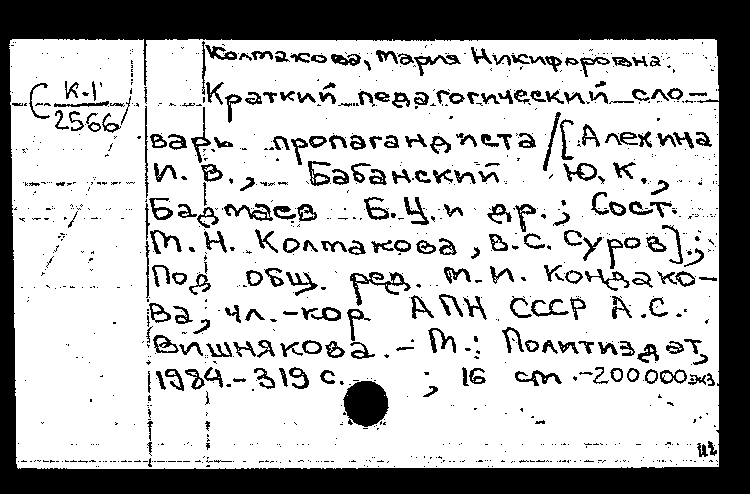 Колтакова, Мария Никифоровна.
С К-1
2566
Краткий педагогический сло-
варь пропагандиста / [Алехина
И. В., Бабанский Ю. К.,
Бадмаев Б. Ц. и др.; Сост.
М. Н. Колмакова, В. С. Суров].;
Под общ. ред. М. И. Кондако-
ва, чл.-кор АПН СССР А. С.
Вишнякова. - М.: Политиздат,
1984. - 319 с. ; 16 см. - 200 000 экз.